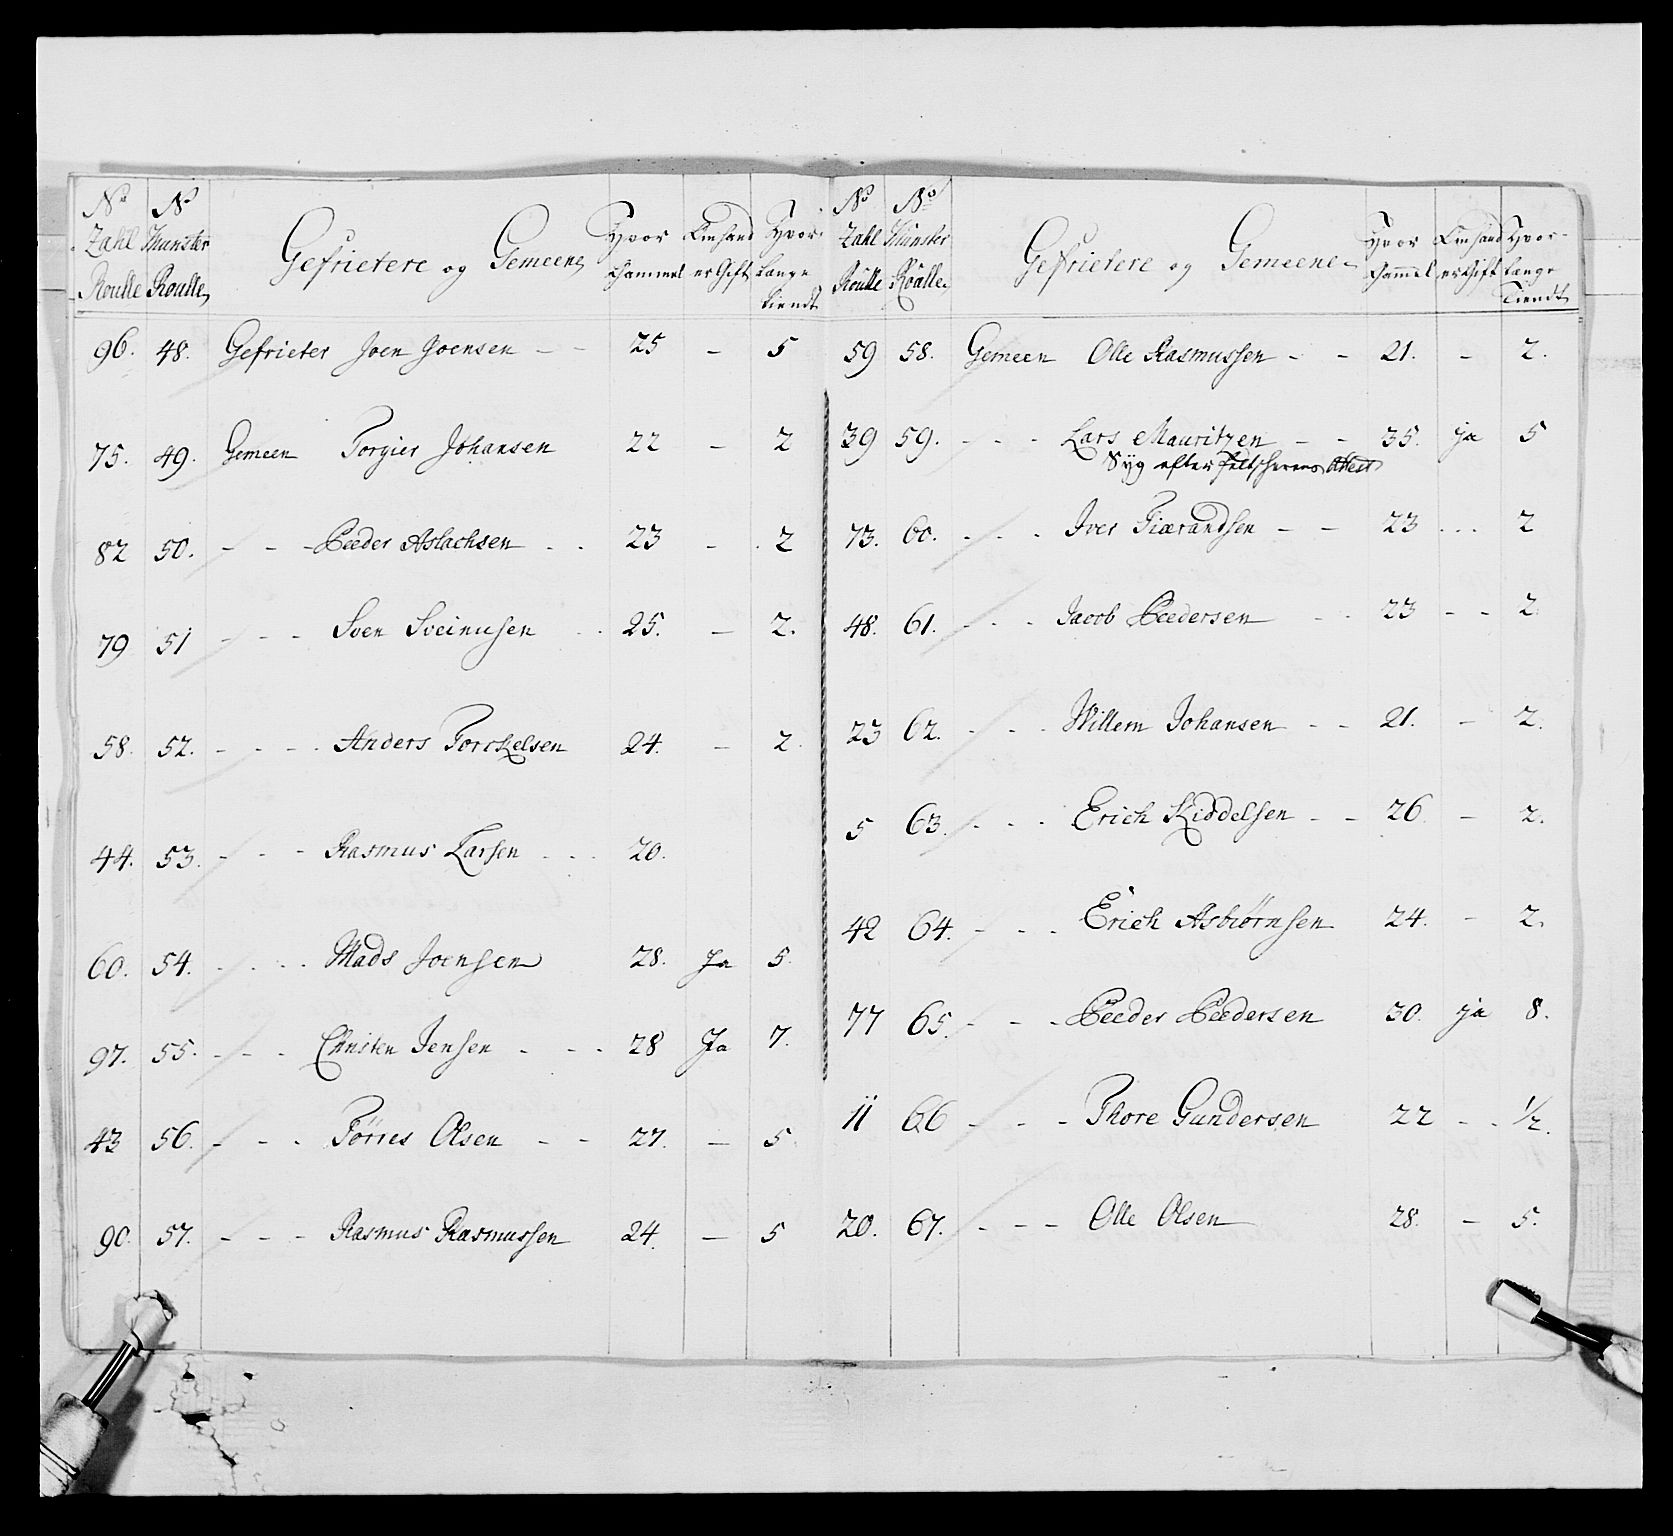 No Zahl Roulle | No Munster Roulle | Gefrietere og Gemeene | Hvor Gammel | Om hand er Gift | Hvor Længe tiendt
96. 48. Gefrieter Joen Joensen - - 25 - 5
75. 49. Gemeen Torgier Johansen 22 - 2
82 50. - - - Peeder Aslachsen . . 23 - . 2
79 51 - - - Sven Sveinusen . . 25. - 2.
58. 52. - - - . Anders Torckelsen 24. - 2.
44. 53. - - - Rasmus Larsen . . . 20.
60. 54. . . . . Mads Joensen 28. Ja 5.
97. 55. - - - Christen Jensen . . . 28 Ja 7.
43 56. - - . Törres Olsen - - 27. - 5.
90. 57. - - - Rasmus Rasmussen 24. - 5
No Zahl Roulle | No Munster Roulle | Gefrietere og Gemeene | Hvor Gammel | Om hand er Gift | Hvor Længe Tiendt
59 58. Gemeen Olle Rasmussen - - 21. - 2.
39 59. - - - Lars Mauritzen - - 35. ja 5
Syg efter Feltscherens Attest
73. 60. . . . Iver Tiærandsen - - 23 . . . 2
48. 61. - . . Jacob Peedersen . . 23 - - 2.
23 62. . - . Willem Johansen - - 21. - 2.
5 63. . . . Erich Kiddelsen - - 26 - 2.
42 64. - . . Erich Asbiörnsen 24. - 2.
77 65. - - - Peeder Peedersen 30. ja 8.
11 66 - - - Thore Gundersen 22 - . 1/2.
20. 67. - - - Olle Olsen 28. - 5.